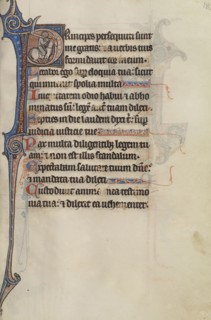 Principes persecuti sunt
me gratis: et a verbis tuis
formidavit cor meum.
Letabor ego sup eloquia tua: sicut
qui invenit spolia multa
Iniquitatem odio habui et abho
minatus sū: legē autē tuam dilexi.
Septies in die laudem dixi t: sup
iudicia iusticie tue
Pax multa diligentib; legem tu
am: et non est illis scandalum.
Expectabam salutare tuum dn̄e:
et mandata tua dilexi.
Custodivit anima mea testimo
nia tua: et dilexit ea vehementer.